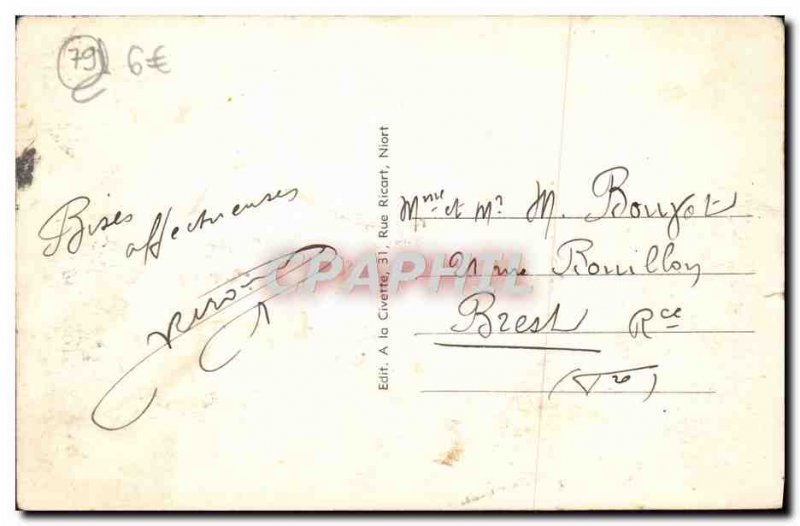 79 6€
Bises
affectueuses
Edit. A la Civette, 31, Rue Ricart, Niort
CPAPHIL
Mme et Mr M. Boujot
21 rue Rouillon
Brest Rce